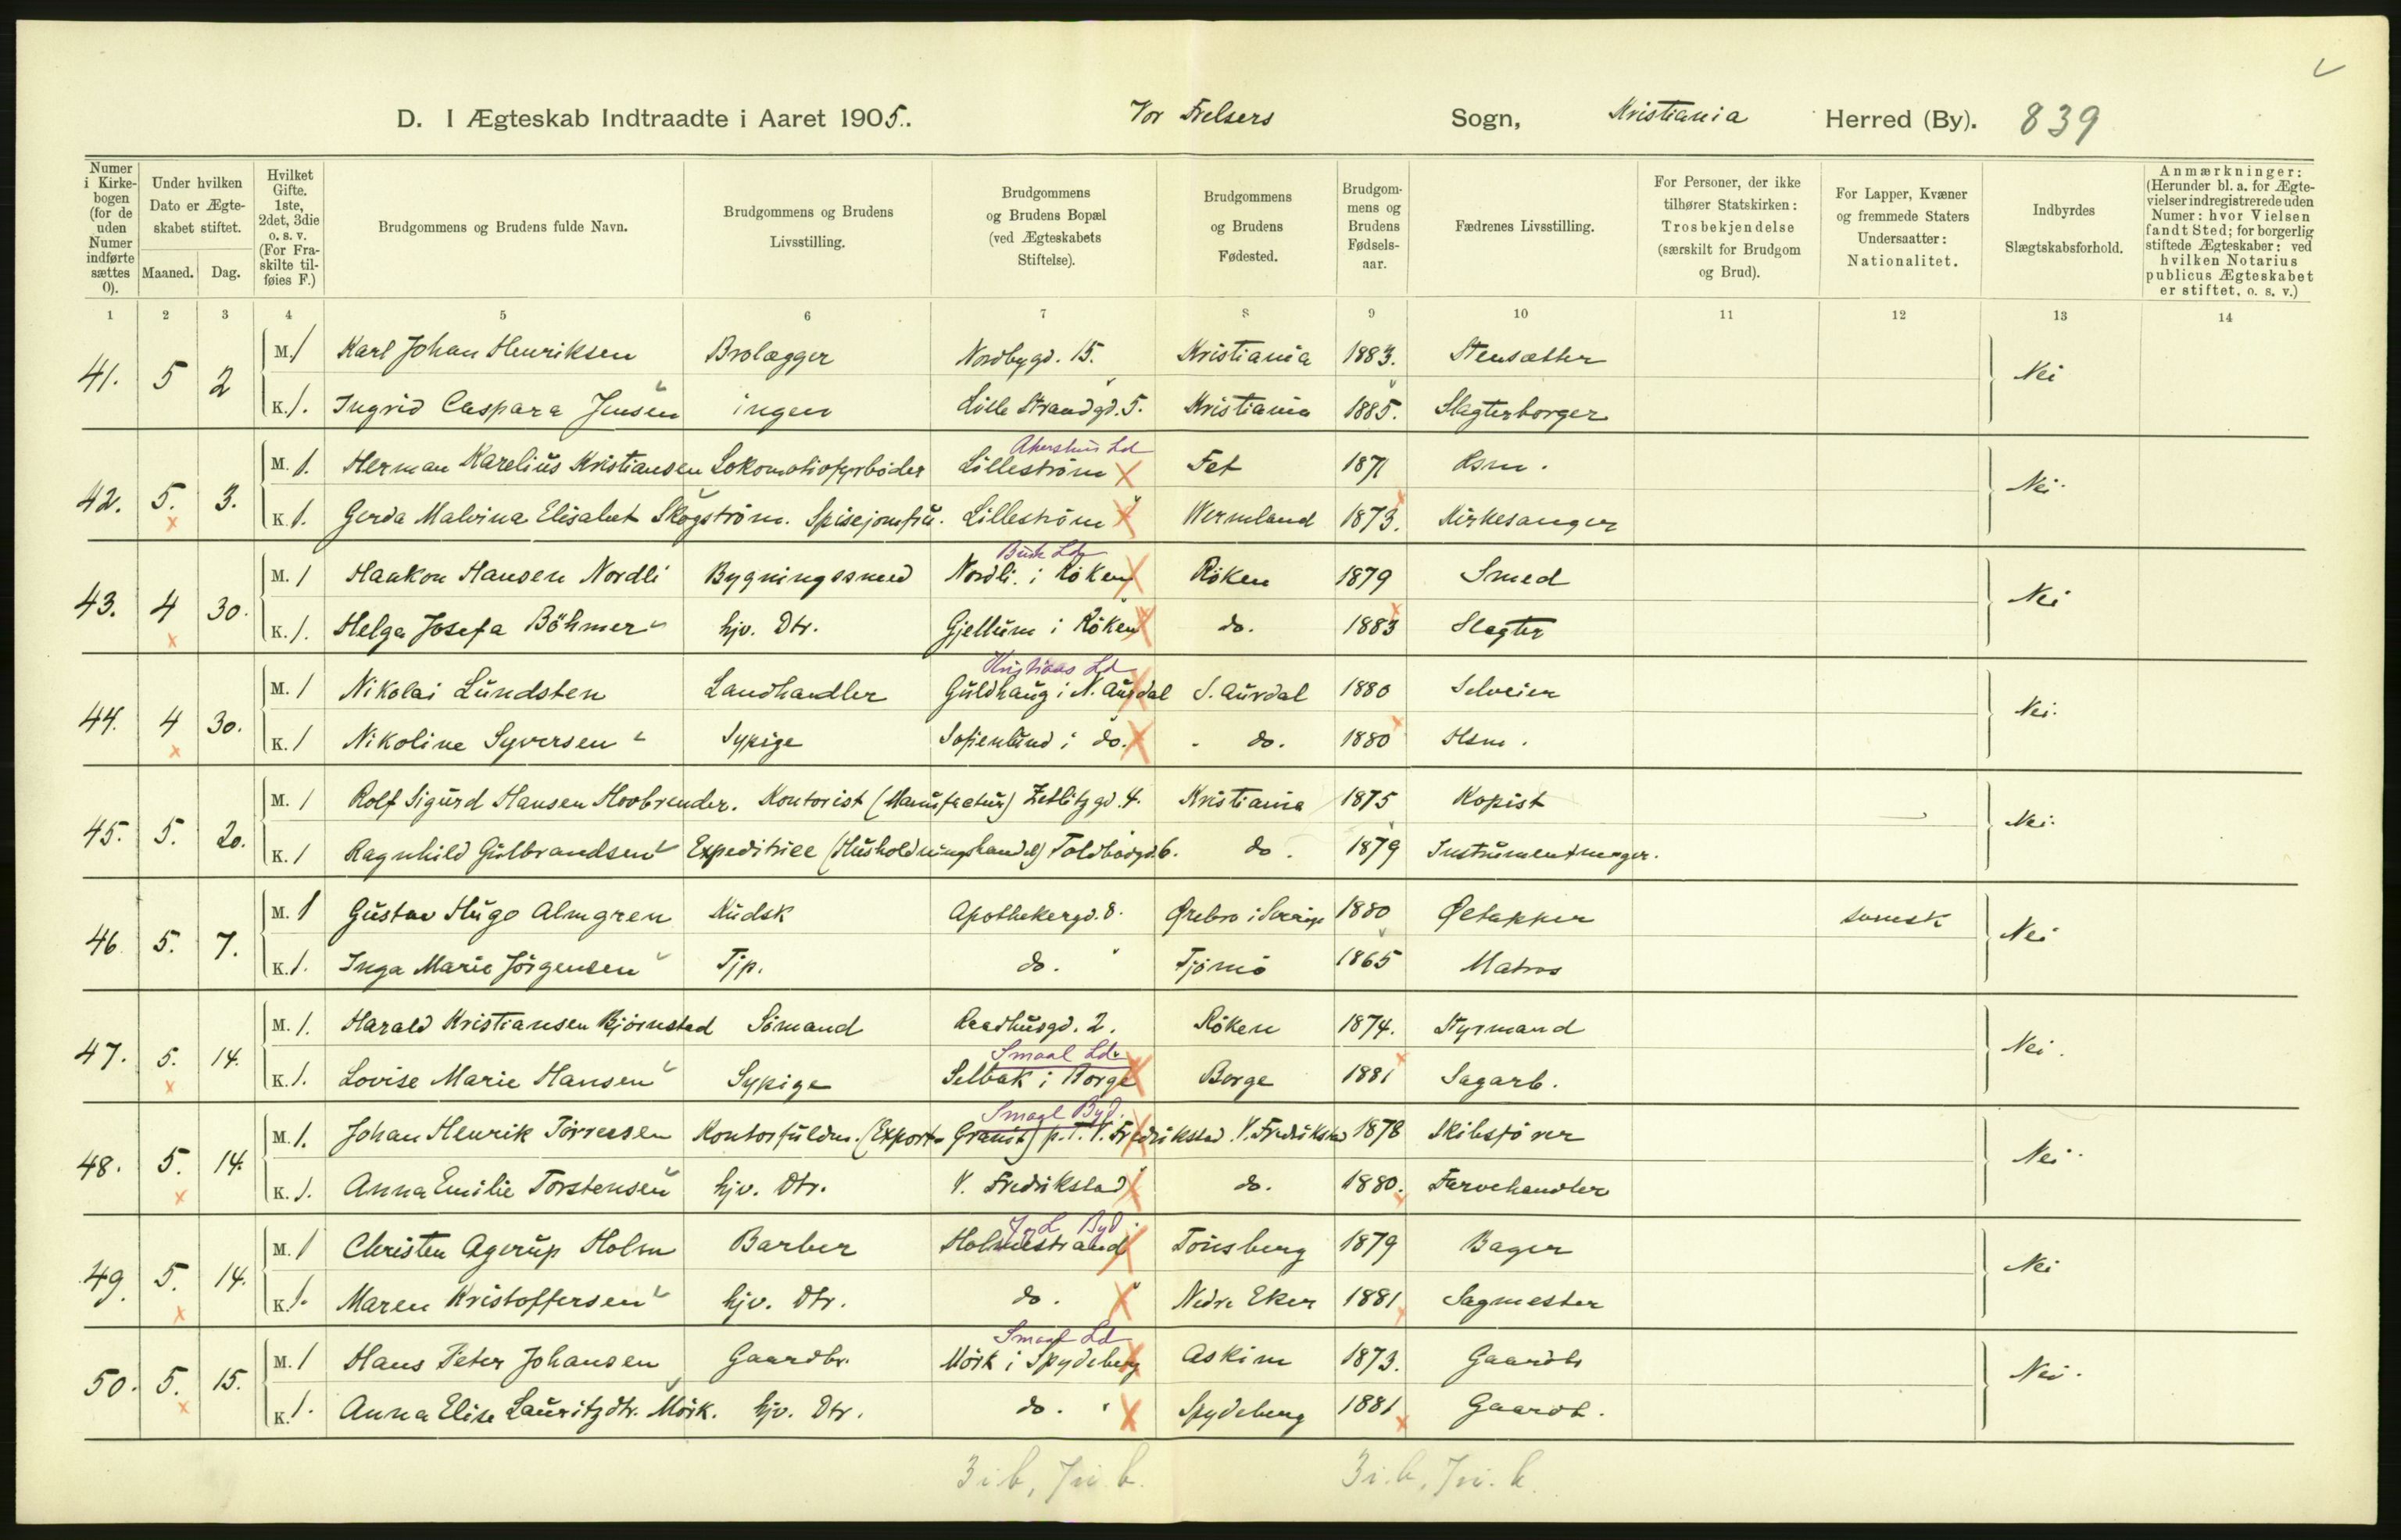 D. I Ægteskab Indtraadte i Aaret 1905. Vor Frelsers Sogn, Kristiania Herred (By). 839
Numer i Kirkebogen (for de uden Numer indførte sættes 0).
Under hvilken Dato er Ægteskabet stiftet.
Maaned. Dag.
Hvilket Gifte. 1ste, 2det, 3die o. s. v. (For Fraskilte tilføies F.)
Brudgommens og Brudens fulde Navn.
Brudgommens og Brudens Livsstilling.
Brudgommens og Brudens Bopæl (ved Ægteskabets Stiftelse).
Brudgommens og Brudens Fødested.
Brudgommens og Brudens Fødselsaar.
Fædrenes Livsstilling.
For Personer, der ikke tilhører Statskirken: Trosbekjendelse (særskilt for Brudgom og Brud).
For Lapper, Kvæner og fremmede Staters Undersaatter: Nationalitet.
Indbyrdes Slægtskabsforhold.
Anmærkninger: (Herunder bl. a. for Ægtevielser indregistrerede uden Numer: hvor Vielsen fandt Sted; for borgerlig stiftede Ægteskaber: ved hvilken Notarius publicus Ægteskabet er stiftet, o. s. v.)
1 2 3 4 5 6 7 8 9 10 11 12 13 14
41. 5 2 M. 1 Karl Johan Henriksen Brolægger Nordbygd. 15. Kristiania 1883. Stensætter Nei
K. 1. Ingrid Caspara Jensen ingen Lille Strandgd. 5. Kristiania 1885. Slagterborger
Akershus Ld
42. 5. 3. M. 1. Herman Karelius Kristiansen Lokomotivfyrbøder Lillestrøm Fet 1871 Hsm. Nei.
K. 1. Gerda Malvina Elisabet Skogström. Spisejomfru. Lillestrøm Wermland 1873. Kirkesanger
Busk Ld
43. 4 30. M. 1 Haakon Hansen Nordli Bygningssmed Nordli i Röken Röken 1879 Smed Nei
K. 1. Helga Josefa Böhmer hjv. Dtr. Gjellum i Röken do. 1883 Slagter
Kristians Ld
44. 4 30. M. 1 Nikolai Lundsten Landhandler Guldhaug i N. Aurdal S. Aurdal 1880 Selveier Nei.
K. 1 Nikoline Syversen Sypige Sofienlund i do. do. 1880 Hsm.
45. 5. 20. M. 1 Rolf Sigurd Hansen Hovbrender. Kontorist (Manufactur) Zetlitzgd. 4. Kristiania 1875 Kopist Nei.
K. 1 Ragnhild Gulbrandsen Expeditrice (Husholdningshandel) Toldbodgd. 6. do. 1879 Instrumentmager.
46 5. 7. M. 1 Gustav Hugo Almgren Kudsk Apothekergd. 8. Ørebro i Sverige 1880 Øltapper svensk Nei
K. 1. Inga Marie Jörgensen Tjp. do. Tjømö 1865 Matros
47. 5. 14. M. 1. Harald Kristiansen Bjørnstad Sömand Raadhusgd. 2. Röken 1874. Styrmand Nei.
Smaal Ld.
K. 1. Lovise Marie Hansen Sypige Selbak i Borge Borge 1881 Sagarb.
Smaal Byd.
48. 5. 14. M. 1. Johan Henrik Törresen Kontorfuldm. (Export-Granit) p. T. V. Fredrikstad V. Fredrikstad 1878 Skibsförer Nei.
K. 1. Anna Emilie Torstensen hjv. Dtr. V. Fredrikstad do. 1880. Farvehandler
J. L. Byd.
49. 5. 14. M. 1 Christen Agerup Holm Barber Holmestrand Tönsberg 1879 Bager Nei
K. 1. Maren Kristoffersen hjv. Dtr. do. Nedre Eker 1881 Sagmester
Smaal Ld
50. 5. 15. M. 1 Hans Peter Johansen Gaardbr. Mörk i Spydeberg Askim 1873. Gaardb. Nei.
K. 1. Anna Elise Lauritzdtr. Mörk. hjv. Dtr. do. Spydeberg 1881 Gaardb.
3 i. b, 7 i. b. 3 i. b, 7 i. b.